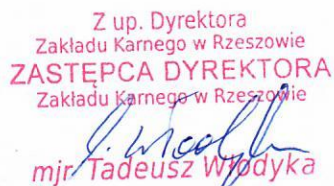 Z up. Dyrektora
Zakładu Karnego w Rzeszowie
ZASTĘPCA DYREKTORA
Zakładu Karnego w Rzeszowie
mjr Tadeusz Włodyka